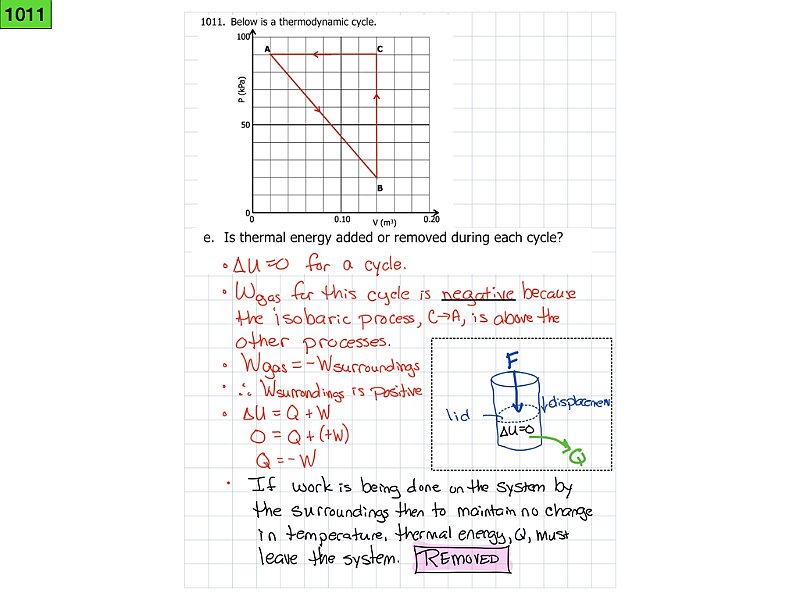 1011
1011. Below is a thermodynamic cycle.
100
A
C
P (kPa)
50
B
0
0
0.10
V (m³)
0.20
e. Is thermal energy added or removed during each cycle?
• ΔU=0 for a cycle.
• Wgas for this cycle is negative because
the isobaric process, C→A, is above the
other processes.
• Wgas = -Wsurroundings
• ∴ Wsurrondings is positive
• ΔU = Q + W
0 = Q + (+W)
Q = - W
F
↓displacment
lid
ΔU=0
Q
• If work is being done on the system by
the surroundings then to maintain no change
in temperature, thermal energy, Q, must
leave the system. REMOVED